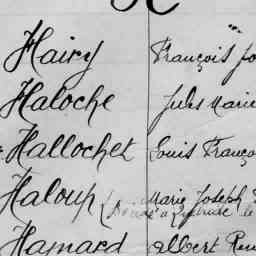 H
Hairy François Jo
Haloche Jules Marie
Hallochet Louis Franço
Haloup Marie Joseph
Hamard Albert Ren